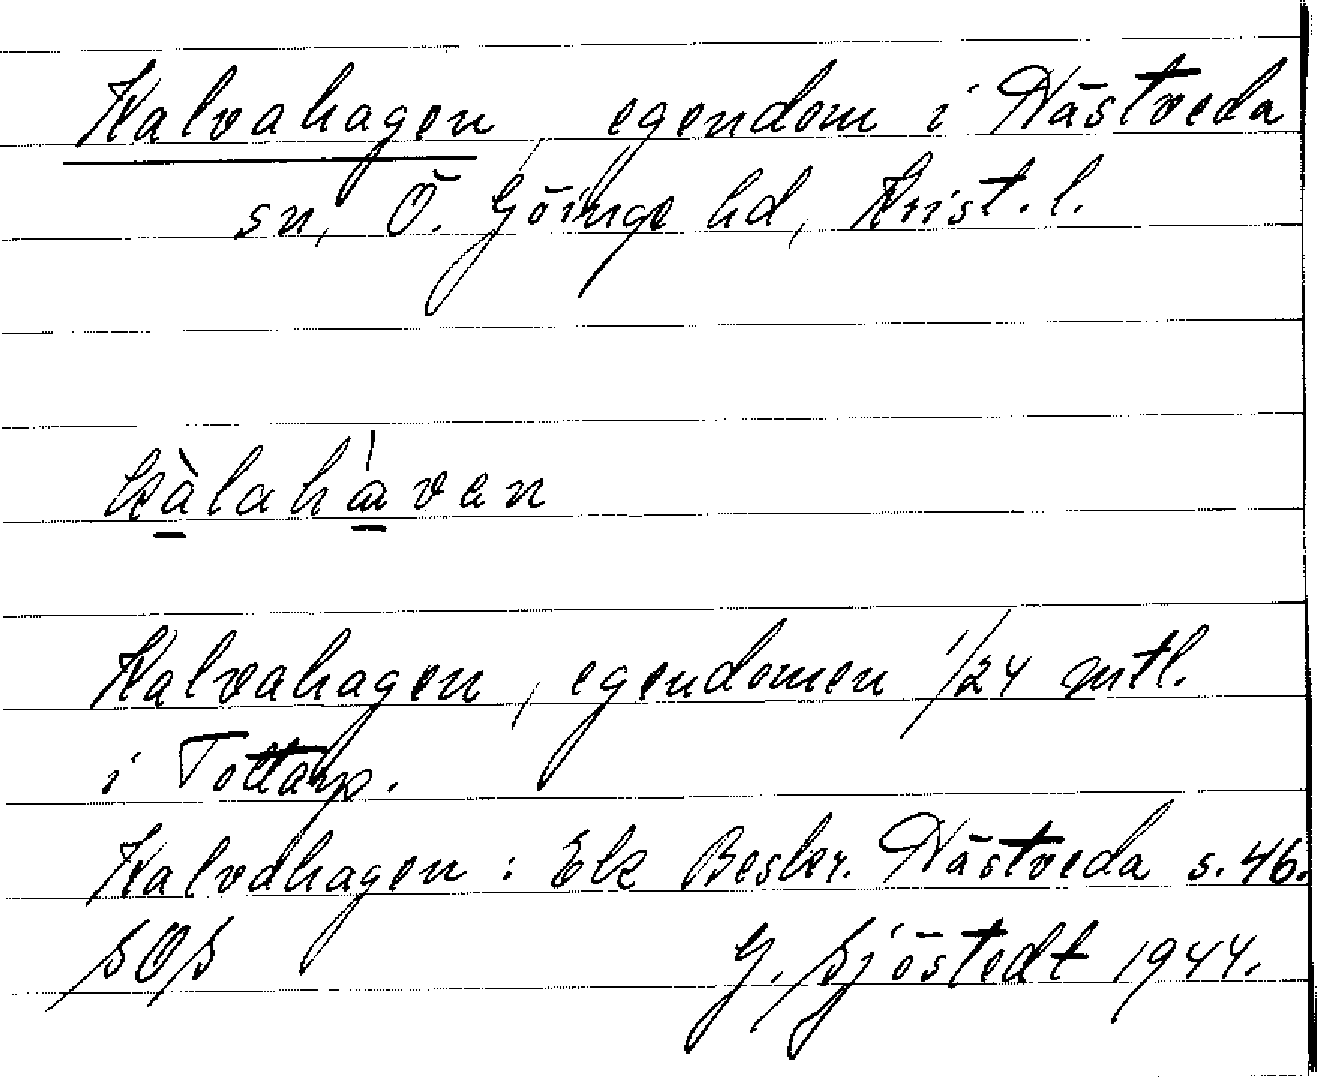 Kalvahagen egendom i Hästveda
sn, Ö. Göinge hd, Krist. l.
kàlahàvan
Kalvahagen, egendomen 1/24 mtl.
i Tottarp.
Kalvahagen: Ek Beskr. Hästveda s. 46.
SOS G. Sjöstedt 1944.